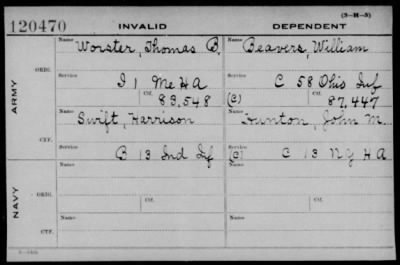 (3-H-3)
120470 INVALID DEPENDENT
Name Worster, Thomas B. Name Beavers, William
ORIG.
Service I 1 Me H A Service C 58 Ohio Inf
Ctf. 83,548 (C) Ctf. 87,447
ARMY
Name Swift, Harrison Name Hunton, John M.
CTF.
Service B 13 Ind Inf Service (C) C 13 N Y H A
Name Name
ORIG.
Service Service
NAVY
Name Name
CTF.
Service Service